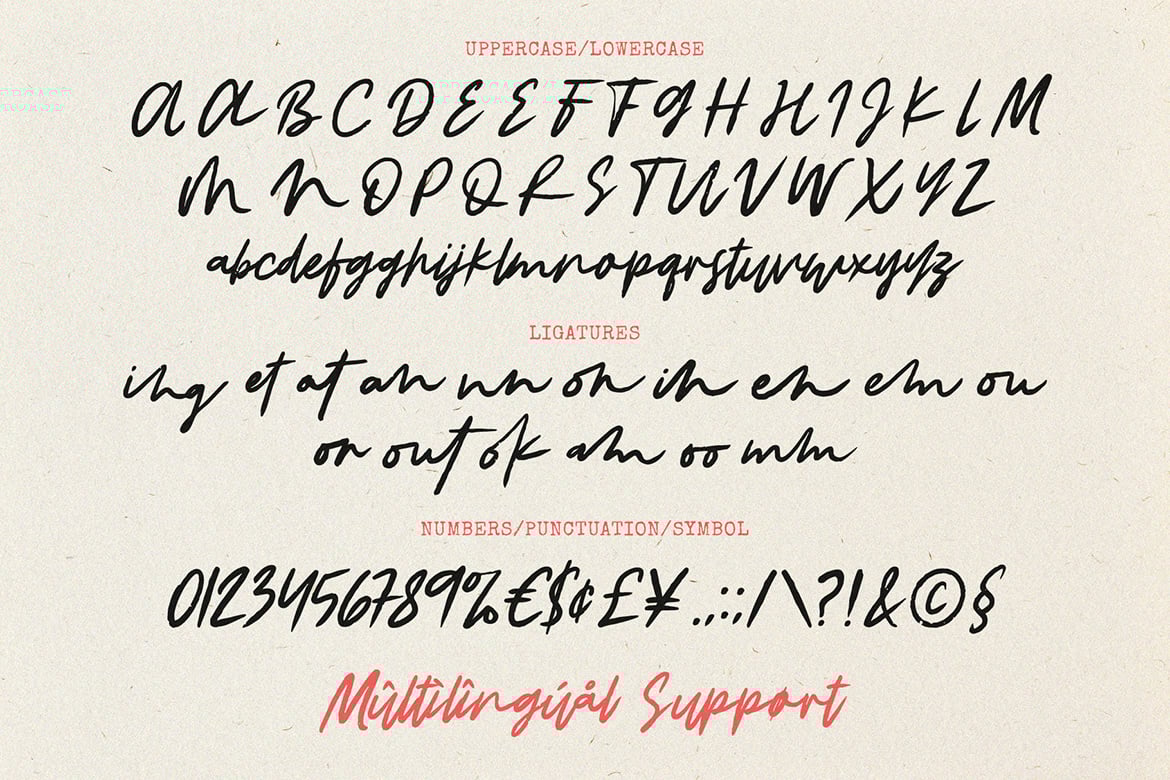 UPPERCASE/LOWERCASE
A A B C D E E F F G H H I J K L M
M N O P Q R S T U V W X Y Z
abcdefgghijklmnopqrstuvwxyyz
LIGATURES
ing et at an nn on in en em ou
or out ok am oo mm
NUMBERS/PUNCTUATION/SYMBOL
0123456789%€$¢£¥.,:;/\?!&©§
Mûltìlîngúål Suppørt